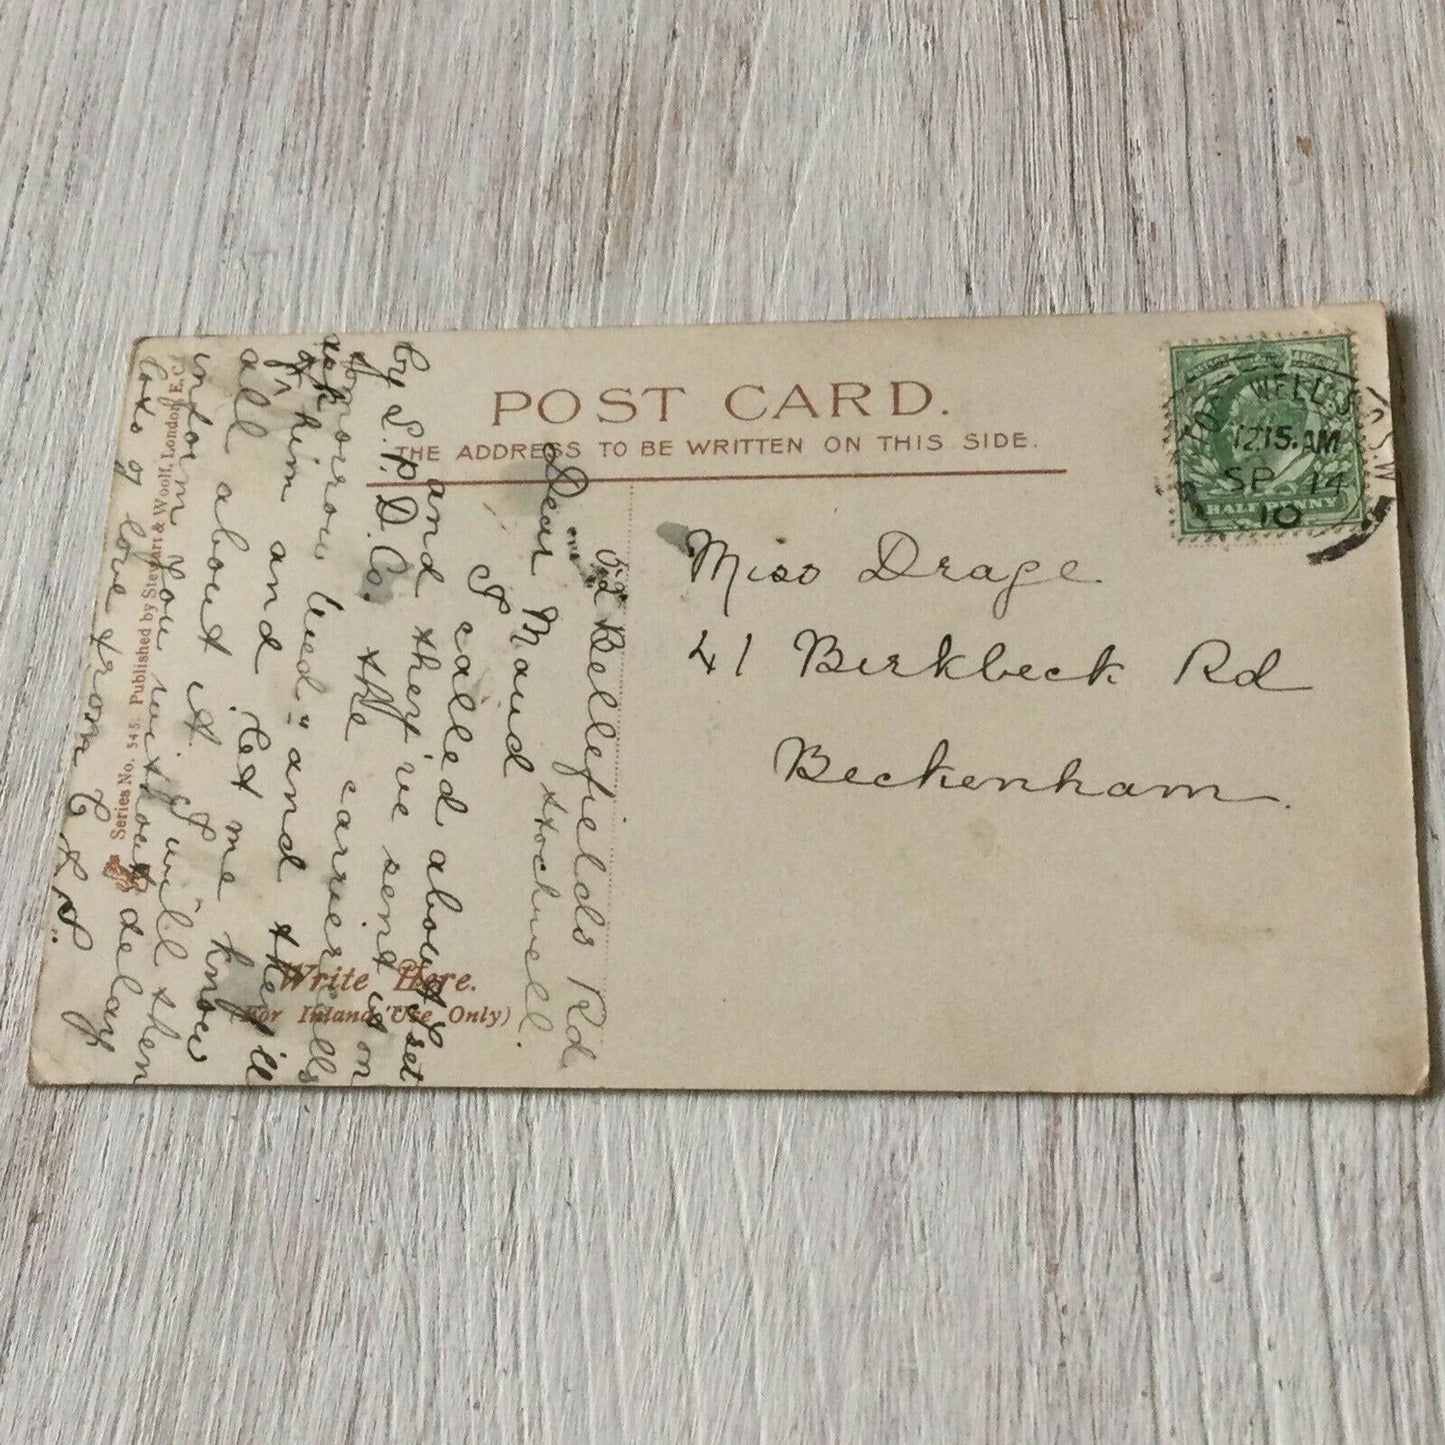 POST CARD.
THE ADDRESS TO BE WRITTEN ON THIS SIDE.
WELLS
12.15.AM
SP 14
10
HALF PENNY
Miss Drage.
41 Birkbeck Rd
Beckenham.
Bellefields Rd
Stockwell.
Dear Maud
I called about set
and they've sent is on
by L.P.D.Co. the carrier calls
tomorrow Wed. and they'll
of him and let me know
all about it I will then
inform you without delay
lots of love from
Write Here.
(For Inland Use Only)
Series No. 545. Published by Stewart & Woolf, London, E.C.